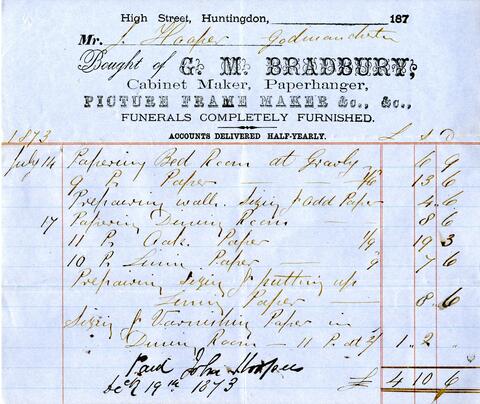 High Street, Huntingdon, 187
Mr. J. Hooper Godmanchester
Bought of G. M. BRADBURY,
Cabinet Maker, Paperhanger,
PICTURE FRAME MAKER &c., &c.,
FUNERALS COMPLETELY FURNISHED.
ACCOUNTS DELIVERED HALF-YEARLY.
1873 £ S D
July 14 Papering Bed Room at Gravly 6 9
9 Ps Paper 1/6 13 6
Prepairing walls. Sizing & add Paper 4 6
17 Papering Dining Room 8 6
11 Ps Oak Paper 1/9 19 3
10 Ps Lining Paper /9 7 6
Prepairing Sizing & putting up
Lining Paper 8 6
Sizing & Varnishing Paper in
Dining Room 11 Ps at 2/ 1 2
Paid John
Decr 19th 1873 £ 4 10 6